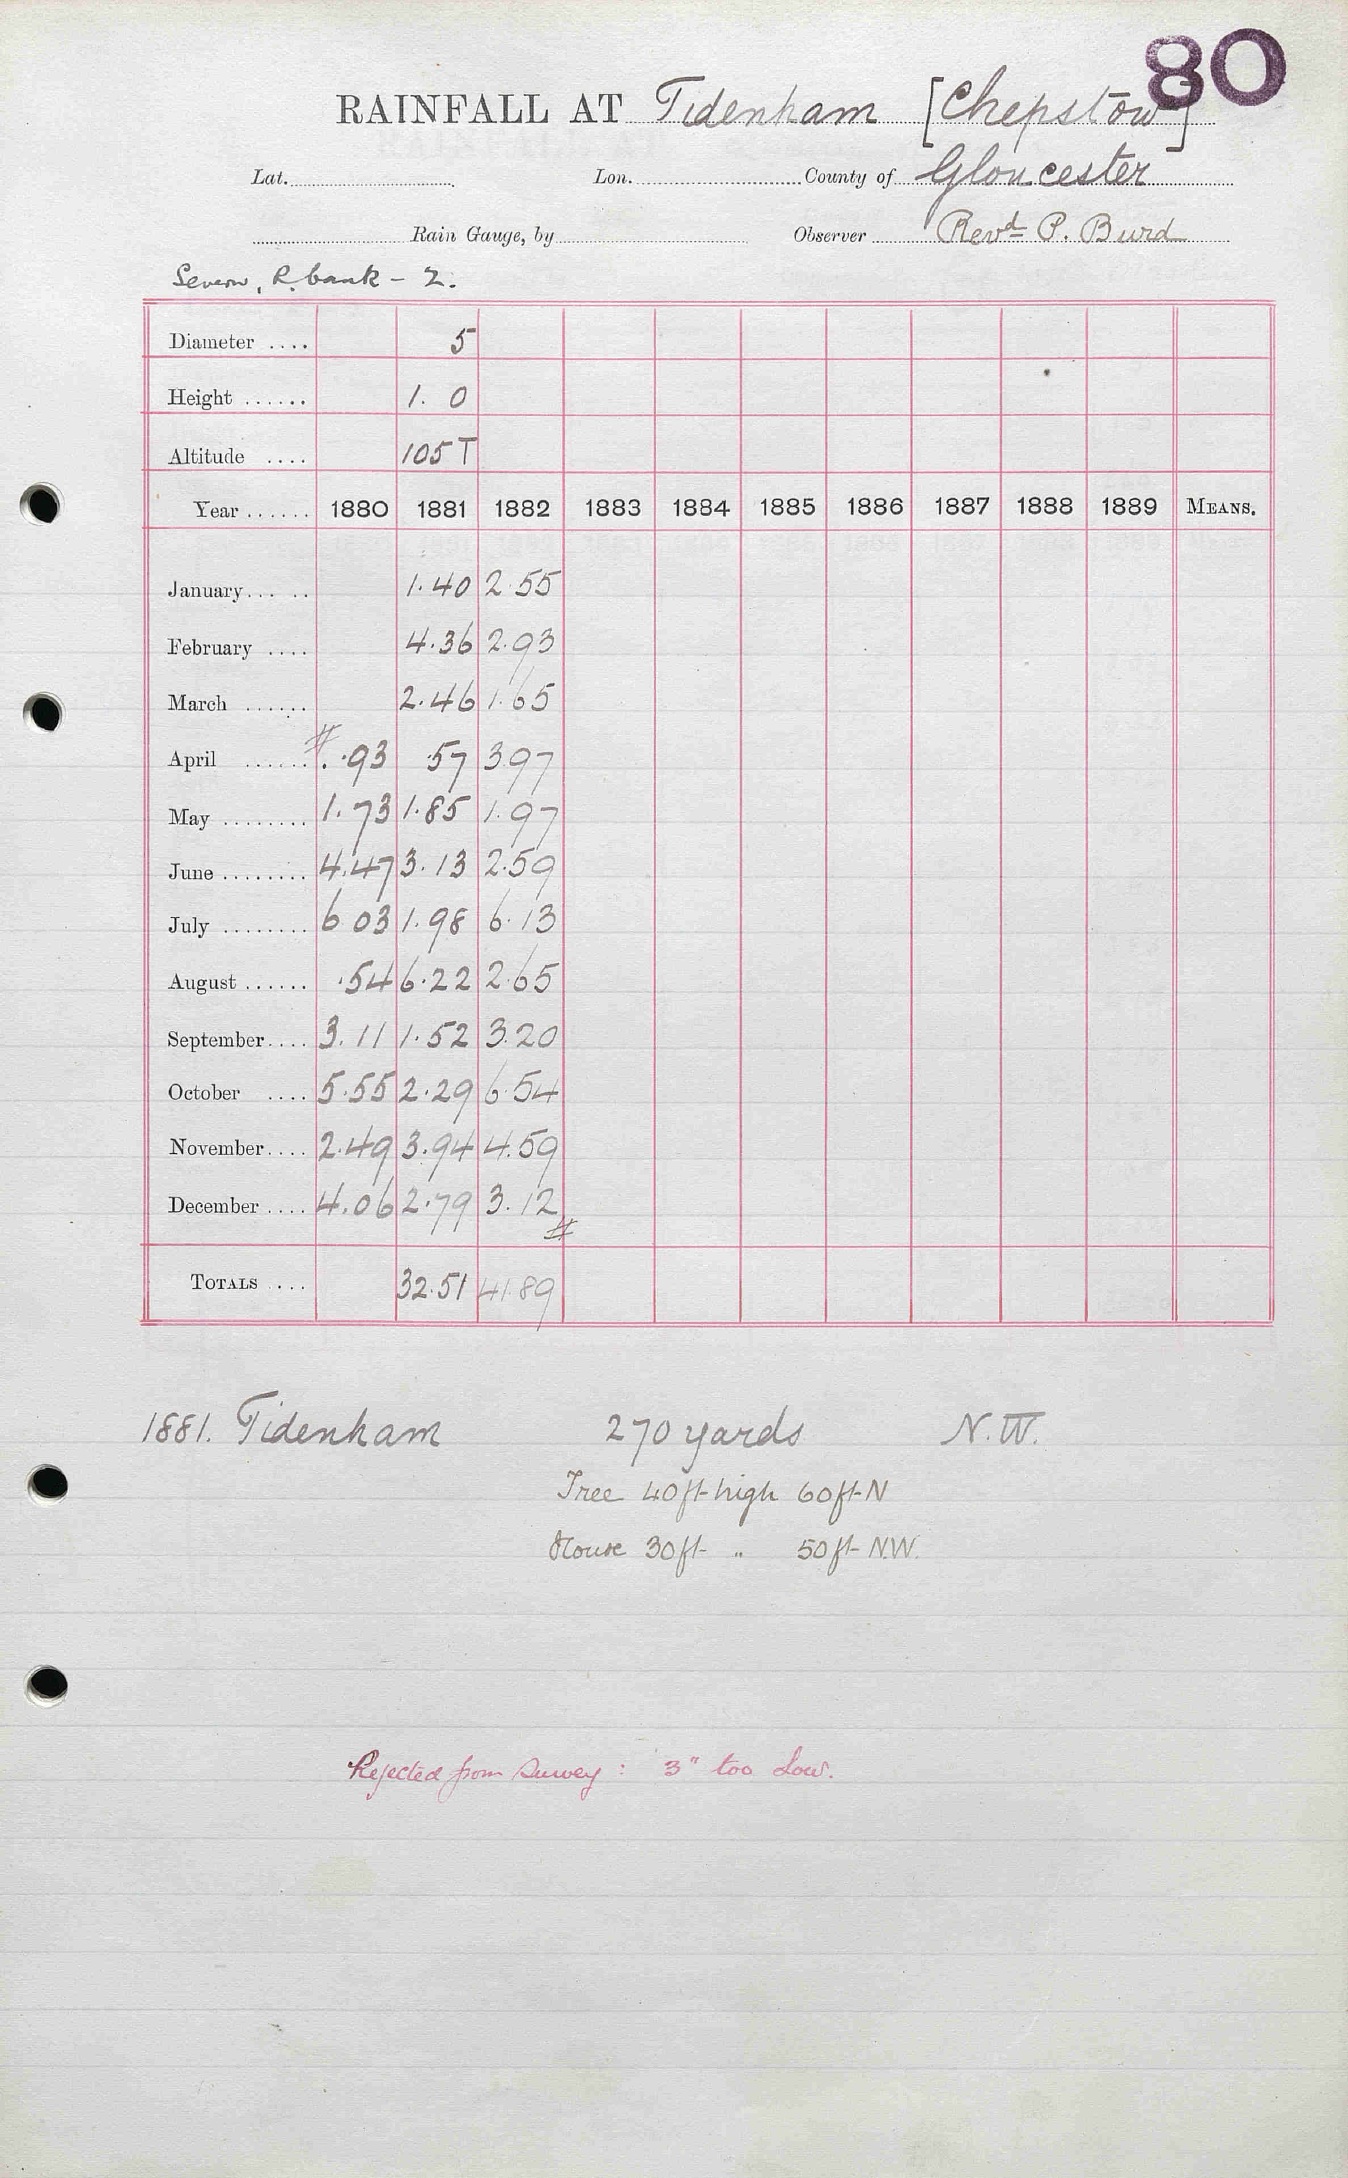 80
RAINFALL AT Tidenham [Chepstow]
Lat. Lon. County of Gloucester
Rain Gauge, by Observer Revd P. Burd
Severn, R. bank - 2.
Diameter .... 5
Height ...... 1. 0
Altitude .... 105 T
Year ...... 1880 1881 1882 1883 1884 1885 1886 1887 1888 1889 MEANS.
January... .. 1.40 2.55
February .... 4.36 2.93
March ...... 2.46 1.65
April ...... # .93 .57 3.97
May ........ 1.73 1.85 1.97
June ........ 4.47 3.13 2.59
July ........ 6.03 1.98 6.13
August ...... .54 6.22 2.65
September.... 3.11 1.52 3.20
October .... 5.55 2.29 6.54
November.... 2.49 3.94 4.59
December .... 4.06 2.79 3.12 #
TOTALS .... 32.51 41.89
1881. Tidenham 270 yards N.W.
Tree 40ft high 60ft N
House 30ft „ 50ft N.W.
Rejected from Survey : 3" too low.